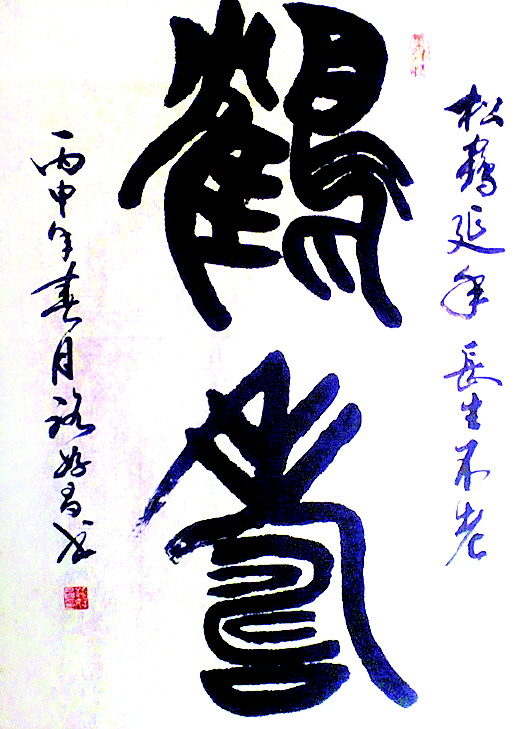 松鶴延年 長生不老
鶴壽
丙申年春月